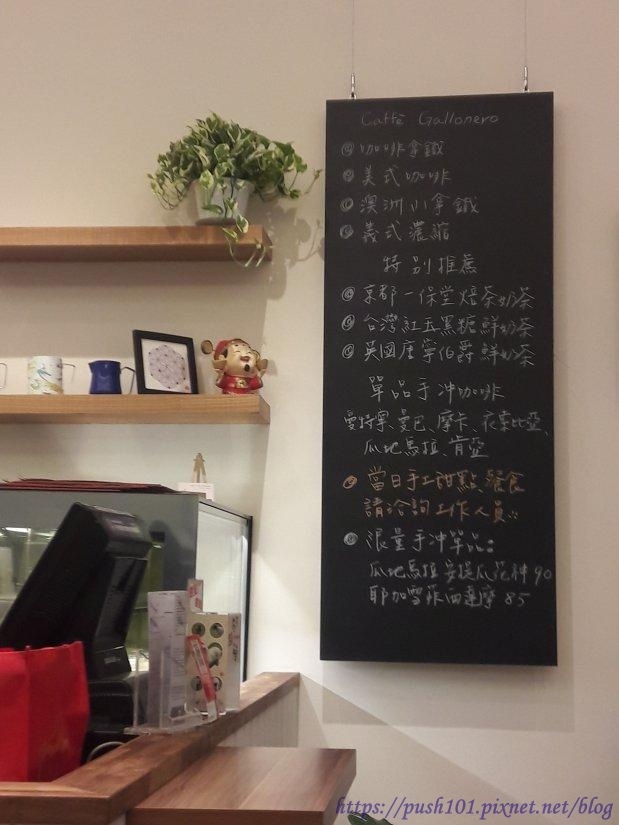 Caffè Gallonero
咖啡拿鐵
美式咖啡
澳洲小拿鐵
義式濃縮
特別推薦
京都一保堂焙茶奶茶
台灣紅玉黑糖鮮奶茶
英國唐寧伯爵鮮奶茶
單品手沖咖啡
曼特寧、曼巴、摩卡、衣索比亞、
瓜地馬拉、肯亞
當日手工甜點、餐食
請洽詢工作人員
限量手沖單品:
瓜地馬拉安提瓜花神 90
耶加雪菲 85
https://push101.pixnet.net/blog